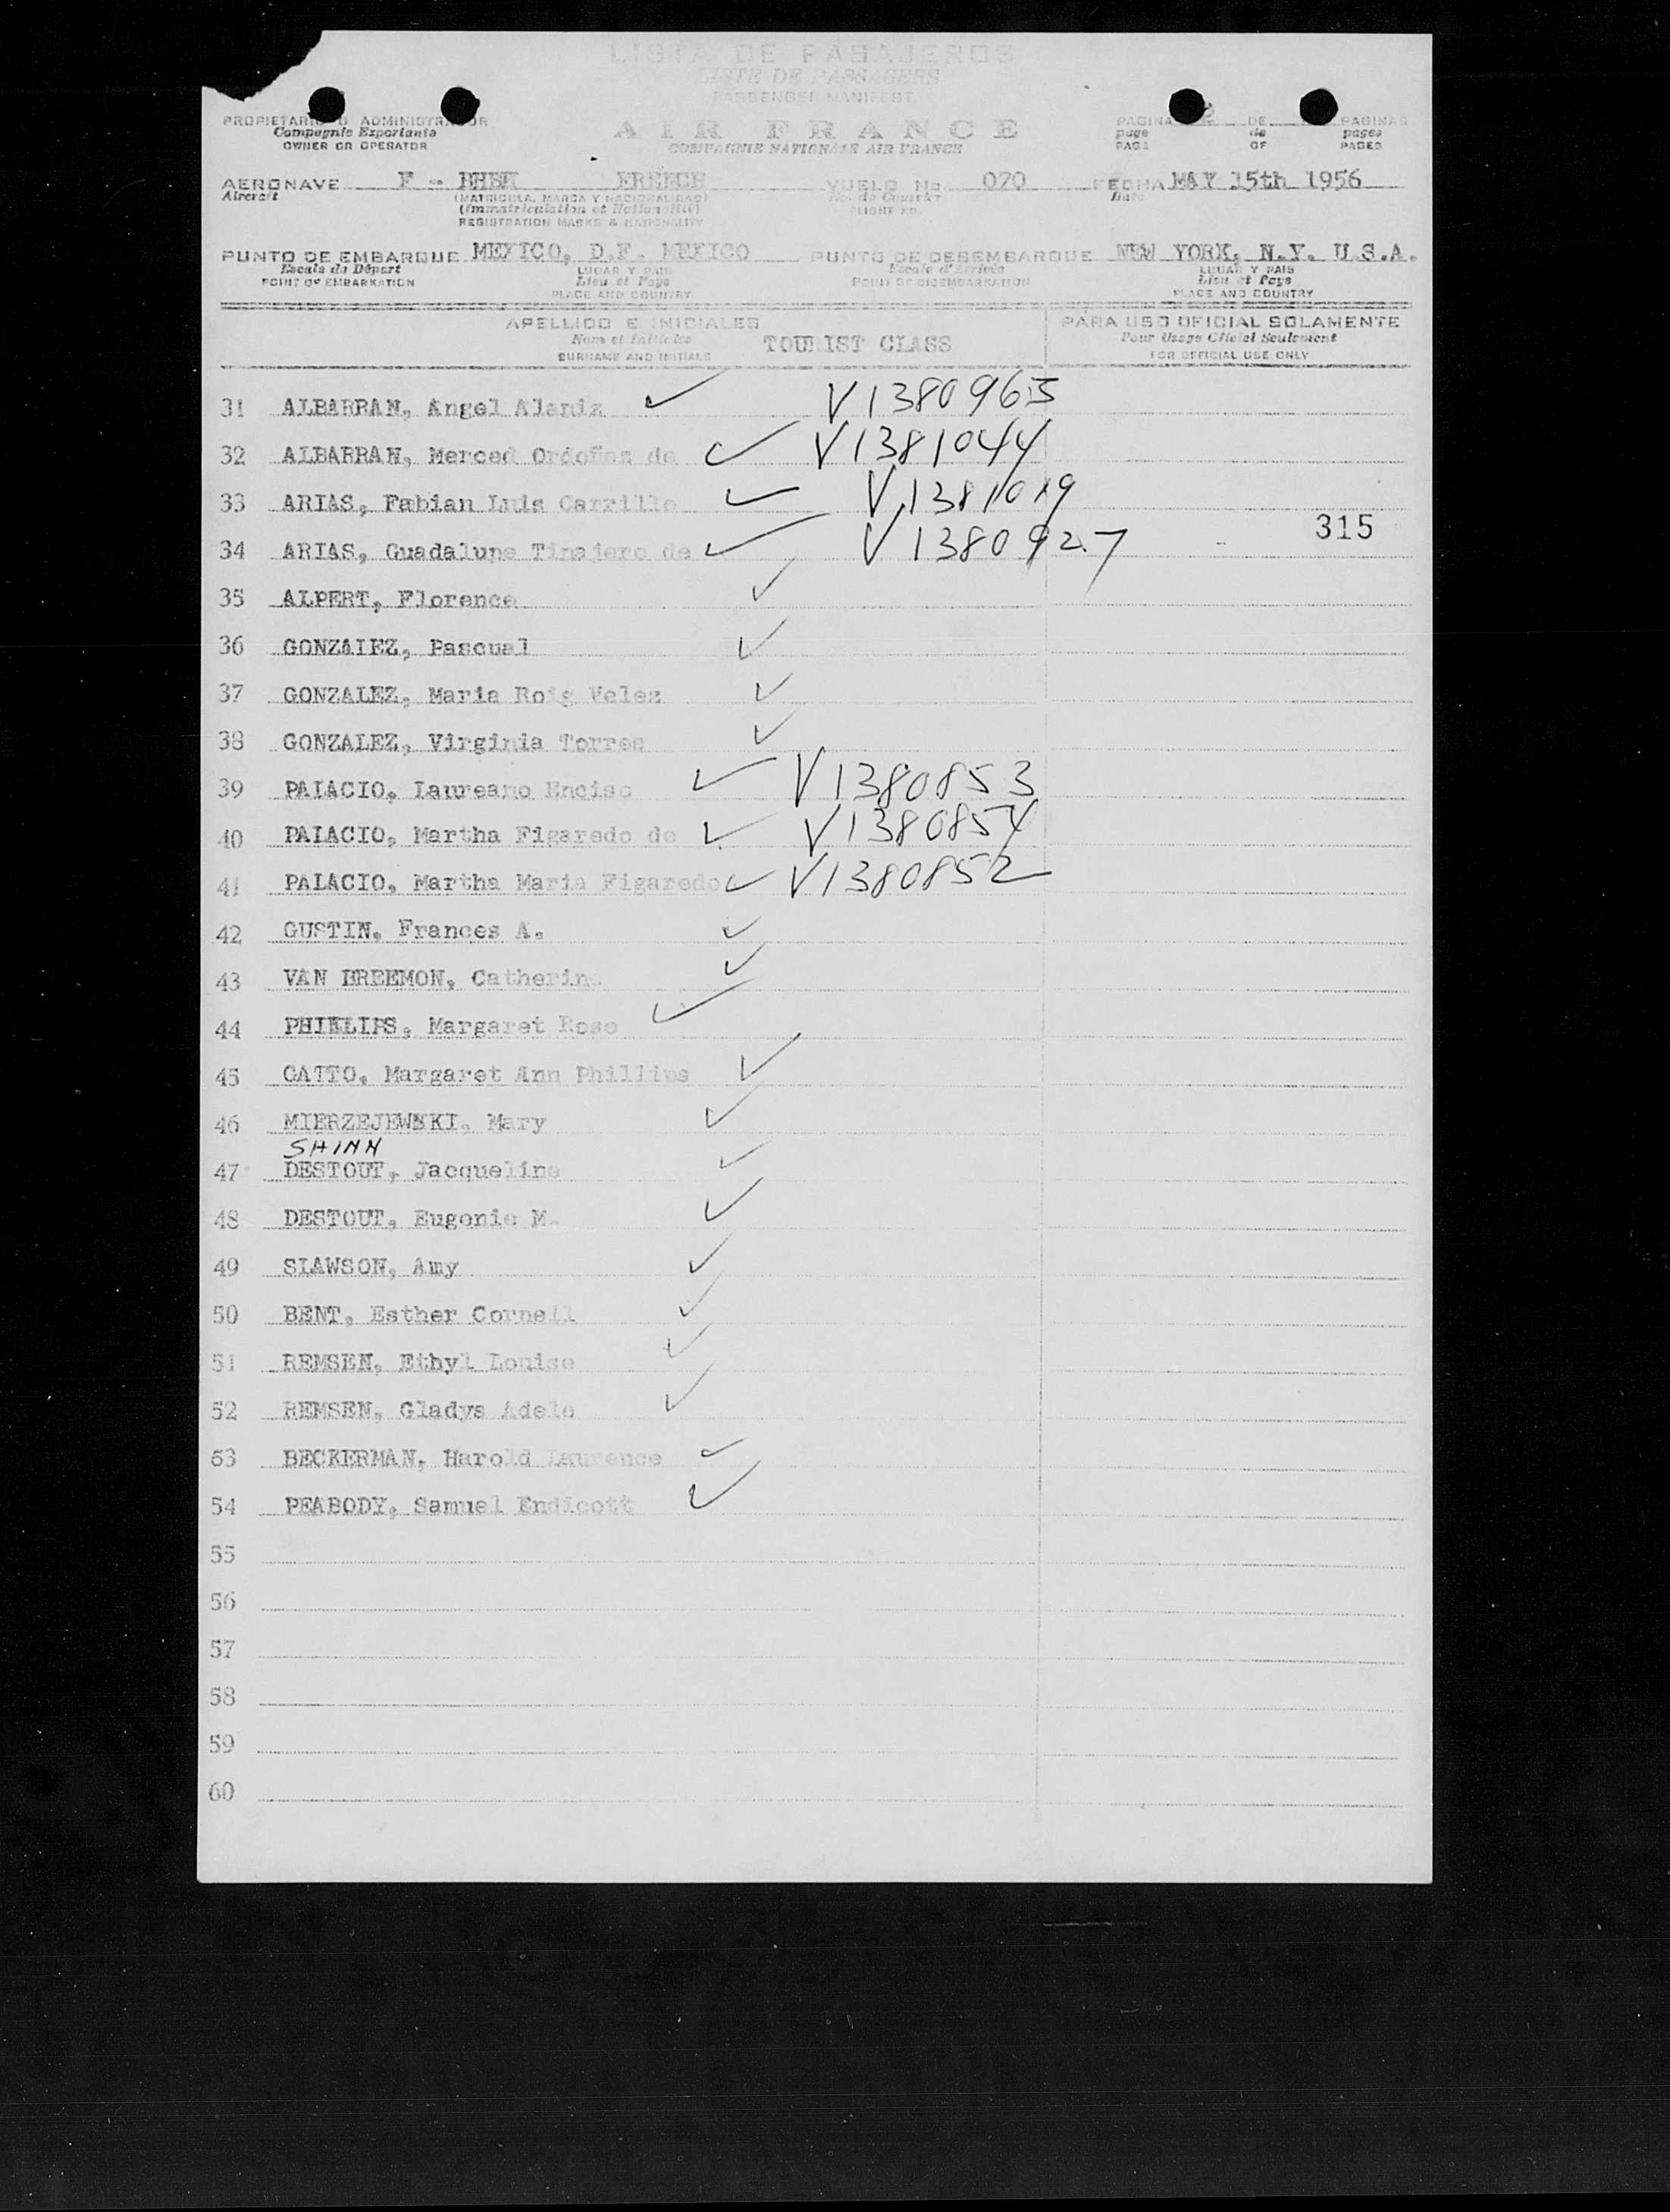 LISTA DE PASAJEROS
LISTE DE PASSAGERS
PASSENGER MANIFEST
PROPIETARIO O ADMINISTRADOR
Compagnie Exportante
OWNER OR OPERATOR
AIR FRANCE
COMPAGNIE NATIONALE AIR FRANCE
PAGINA 2 DE PAGINAS
page de pages
PAGE OF PAGES
AERONAVE F - FRENCH VUELO No. 070 FECHA MAY 15th 1956
Aircraft (MATRICULA, MARCA Y NACIONALIDAD) No. de Courrier Date
(Immatriculation et Nationalité) FLIGHT NO.
REGISTRATION MARKS & NATIONALITY
PUNTO DE EMBARQUE MEXICO, D.F. MEXICO PUNTO DE DESEMBARQUE NEW YORK, N.Y. U.S.A.
Escala du Départ LUGAR Y PAIS Escale d'Arrivée LUGAR Y PAIS
POINT OF EMBARKATION Lieu et Pays POINT OF DISEMBARKATION Lieu et Pays
PLACE AND COUNTRY PLACE AND COUNTRY
APELLIDO E INICIALES PARA USO OFICIAL SOLAMENTE
Nom et Initiales TOURIST CLASS Pour Usage Officiel Seulement
SURNAME AND INITIALS FOR OFFICIAL USE ONLY
31 ALBARRAN, Angel Alaniz ✓ V1380965
32 ALBARRAN, Merced Ordoñez de ✓ V1381044
33 ARIAS, Fabian Luis Carrillo ✓ V1381019
34 ARIAS, Guadalupe Tinajero de ✓ V1380927 315
35 ALPERT, Florence ✓
36 GONZALEZ, Pascual ✓
37 GONZALEZ, Maria Roig Velez ✓
38 GONZALEZ, Virginia Torres ✓
39 PALACIO, Laureano Enciso ✓ V1380853
40 PALACIO, Martha Figaredo de ✓ V1380854
41 PALACIO, Martha Maria Figaredo ✓ V1380852
42 GUSTIN, Frances A. ✓
43 VAN BREEMON, Catherine ✓
44 PHILLIPS, Margaret Rose ✓
45 CATTO, Margaret Ann Phillips ✓
46 MIERZEJEWSKI, Mary ✓
SHINN
47 DESTOUT, Jacqueline ✓
48 DESTOUT, Eugenie M. ✓
49 SLAWSON, Amy ✓
50 BENT, Esther Cornell ✓
51 REMSEN, Ethyl Louise ✓
52 REMSEN, Gladys Adele ✓
53 BECKERMAN, Harold Laurence ✓
54 PEABODY, Samuel Endicott ✓
55
56
57
58
59
60